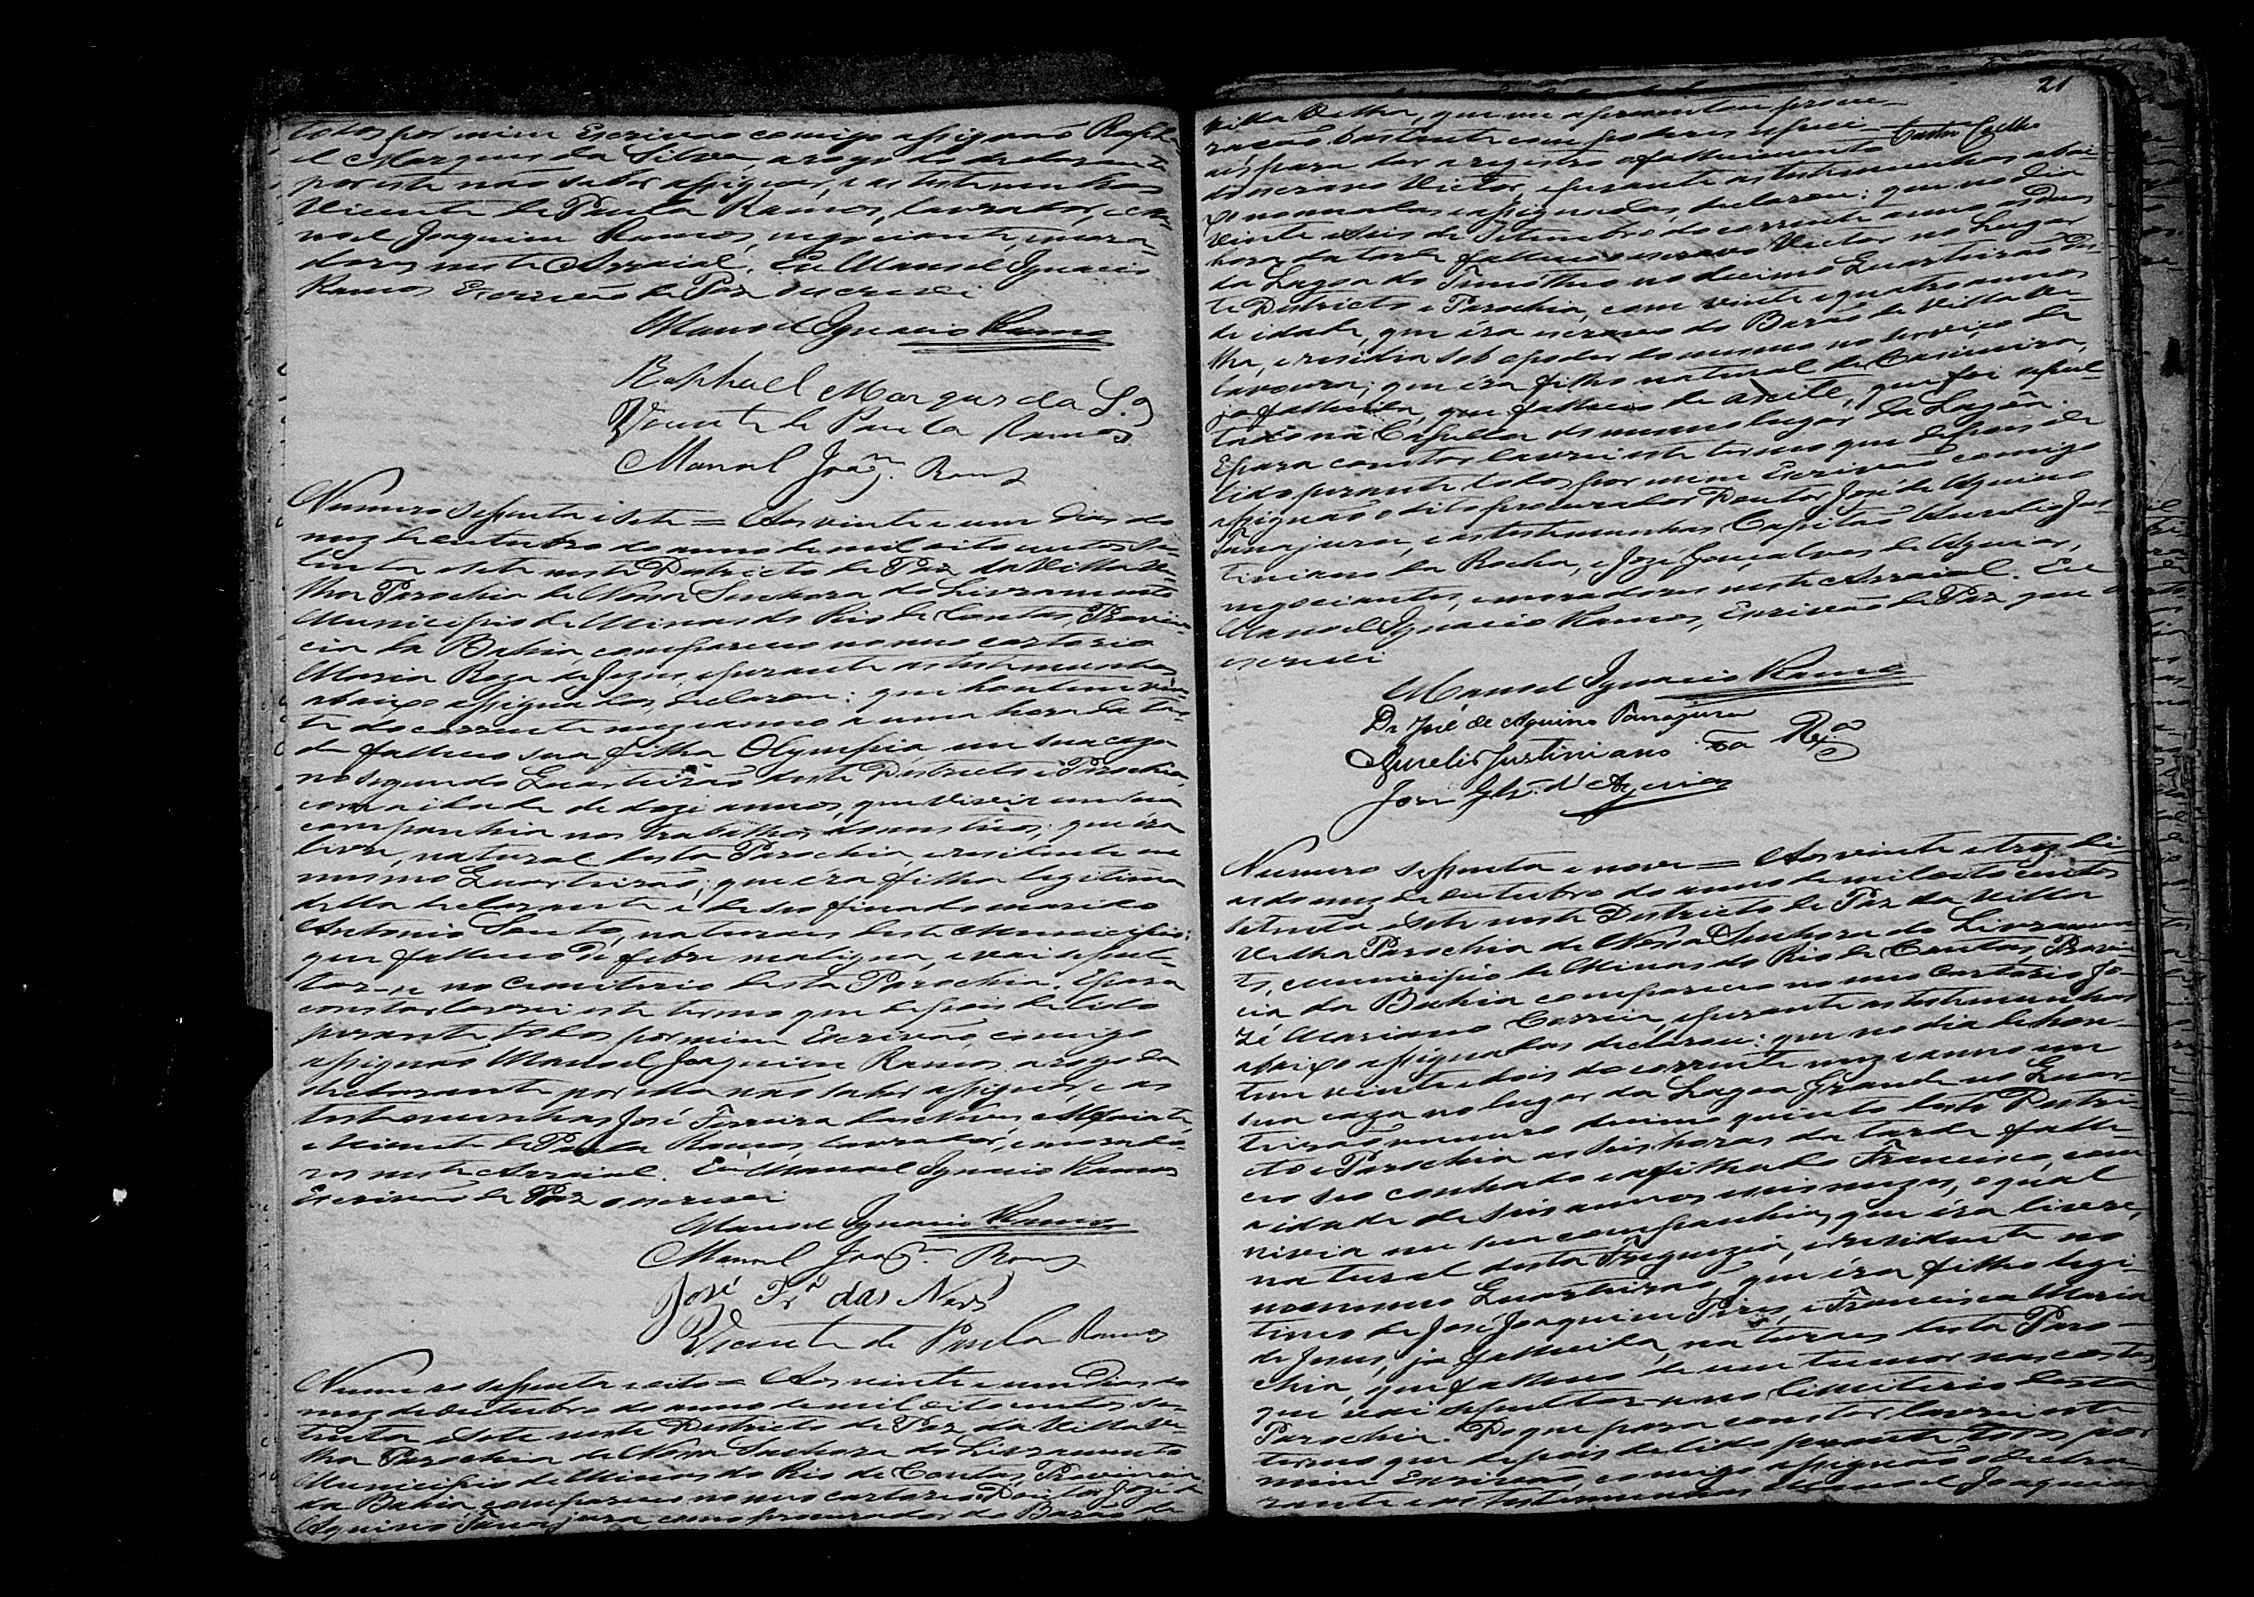 todos por mim Escrivão comigo assignão Rapha-
el Marques da Silva, a rogo do declarante
por este não saber assignar, e as testemunhas
Vicente de Paula Ramos, lavrador, e Ma-
noel Joaquim Ramos, negociante, mora-
dores neste Arraial. Eu Manoel Ignacio
Ramos Escrivão de Paz o escrevi
Manoel Ignacio Ramos
Raphael Marques da S.ª
Vicente de Paula Ramos
Manoel Joaq.m Ramos
Numero sessenta e sete = Aos vinte e um dias do
mez de outubro do anno de mil oito centos se-
tenta e sete neste Districto de Paz da Villa Ve-
lha Parochia de Nossa Senhora do Livramento
Municipio de Minas do Rio de Contas, Provin-
cia da Bahia, compareceo no meo cartorio
Maria Roza de Jezus, e perante as testemunhas
abaixo assignadas, declarou: que hontem vin-
te do corrente mez e anno a uma hora da tar-
de falleceo sua filha Olympia em sua caza
no segundo Quarteirão deste Districto e Parochia,
com a idade de doze annos, que vivia em sua
companhia nos trabalhos domesticos; que éra
livre, natural desta Parochia, e residente no
mesmo Quarteirão; que éra filha legitima
della declarante e de seo finado marido
Antonio Souto, naturaes deste Municipio;
que falleceo de febre maligna, e vai sepul-
tar-se no Cemiterio desta Parochia. E para
constar lavrei este termo que depois de lido
perante todos por mim Escrivão, comigo
assignão Manoel Joaquim Ramos a rogo da
declarante por ella não saber assignar, e as
testemunhas José Ferreira das Neves, Alfaiate,
e Vicente de Paula Ramos, lavrador, e morado-
res neste Arraial. Eu Manoel Ignacio Ramos
Escrivão de Paz o escrevi
Manoel Ignacio Ramos
Manoel Joaq.m Ramos
José Fr.ª das Neves
Vicente de Paula Ramos
Numero sessenta e oito = Aos vinte e um dias do
mez de Outubro do anno de mil oito centos se-
tenta e sete neste Districto de Paz da Villa Ve-
lha Parochia de Nossa Senhora do Livramento
Municipio de Minas do Rio de Contas, Provincia
da Bahia, compareceo no meo cartorio o Doutor José de
Aquino Tanajura, como procurador do Barão de
21
Villa Velha, que me apresentou procu-
ração bastante com poderes especi-
aes para dar a registro o fallecimento Castro Coelho
do escravo Victor, e perante as testemunhas abai-
xo nomeadas e assignadas, declarou: que no dia
vinte e seis de Setembro do corrente anno as duas
horas da tarde falleceo o escravo Victor no lugar
da Lagoa do Timótheo no decimo Quarteirão des-
te Districto e Parochia, com vinte e quatro annos
de idade, que éra escravo do Barão de Villa Ve-
lha, e residia sob o poder do mesmo no serviço da
lavoura; que éra filho natural de Casimira,
já fallecida, que falleceo de , que foi sepul-
tado na Capella do mesmo lugar da Lagôa.
E para constar lavrei este termo que depois de
lido perante todos por mim Escrivão comigo
assignão o dito procurador Doutor José de Aquino
Tanajura, e as testemunhas Capitão Aurelio Jus-
tiniano da Rocha, e José Gonçalves de Aguiar,
negociantes, e moradores neste Arraial. Eu
Manoel Ignacio Ramos, Escrivão de Paz que o
escrevi
Manoel Ignacio Ramos
Dr José de Aquino Tanajura
Aurelio Justiniano da R.ª
José Glz. d'Aguiar
Numero sessenta e nove = Aos vinte e trez di-
as do mez de Outubro do anno de mil oito centos
setenta e sete neste Districto de Paz da Villa
Velha Parochia de Nossa Senhora do Livramen-
to, municipio de Minas do Rio de Contas, Provin-
cia da Bahia compareceo no meo Cartorio Jo-
zé Mariano Correia, e perante as testemunhas
abaixo assignadas declarou: que no dia de hon-
tem vinte e dois do corrente mez e anno em
sua caza no lugar da Lagoa Grande no Quar-
teirão numero decimo quinto deste Distri-
cto e Parochia as seis horas da tarde falle-
ceo seo cunhado e afilhado Francisco, com
a idade de seis annos e seis mezes, o qual
vivia em sua companhia, que éra livre,
natural desta Freguezia, e residente no
mesmo Quarteirão, que éra filho legi-
timo de José Joaquim Pires, e Francisca Maria
de Jesus, já fallecida, naturaes desta Paro-
chia, que falleceo de um tumor nas costas,
que vai sepultar-se no Cimiterio desta
Parochia. Do que para constar lavrei este
termo que depois de lido perante todos por
mim Escrivão, comigo assignão o decla-
rante e as testemunhas Manoel Joaquim